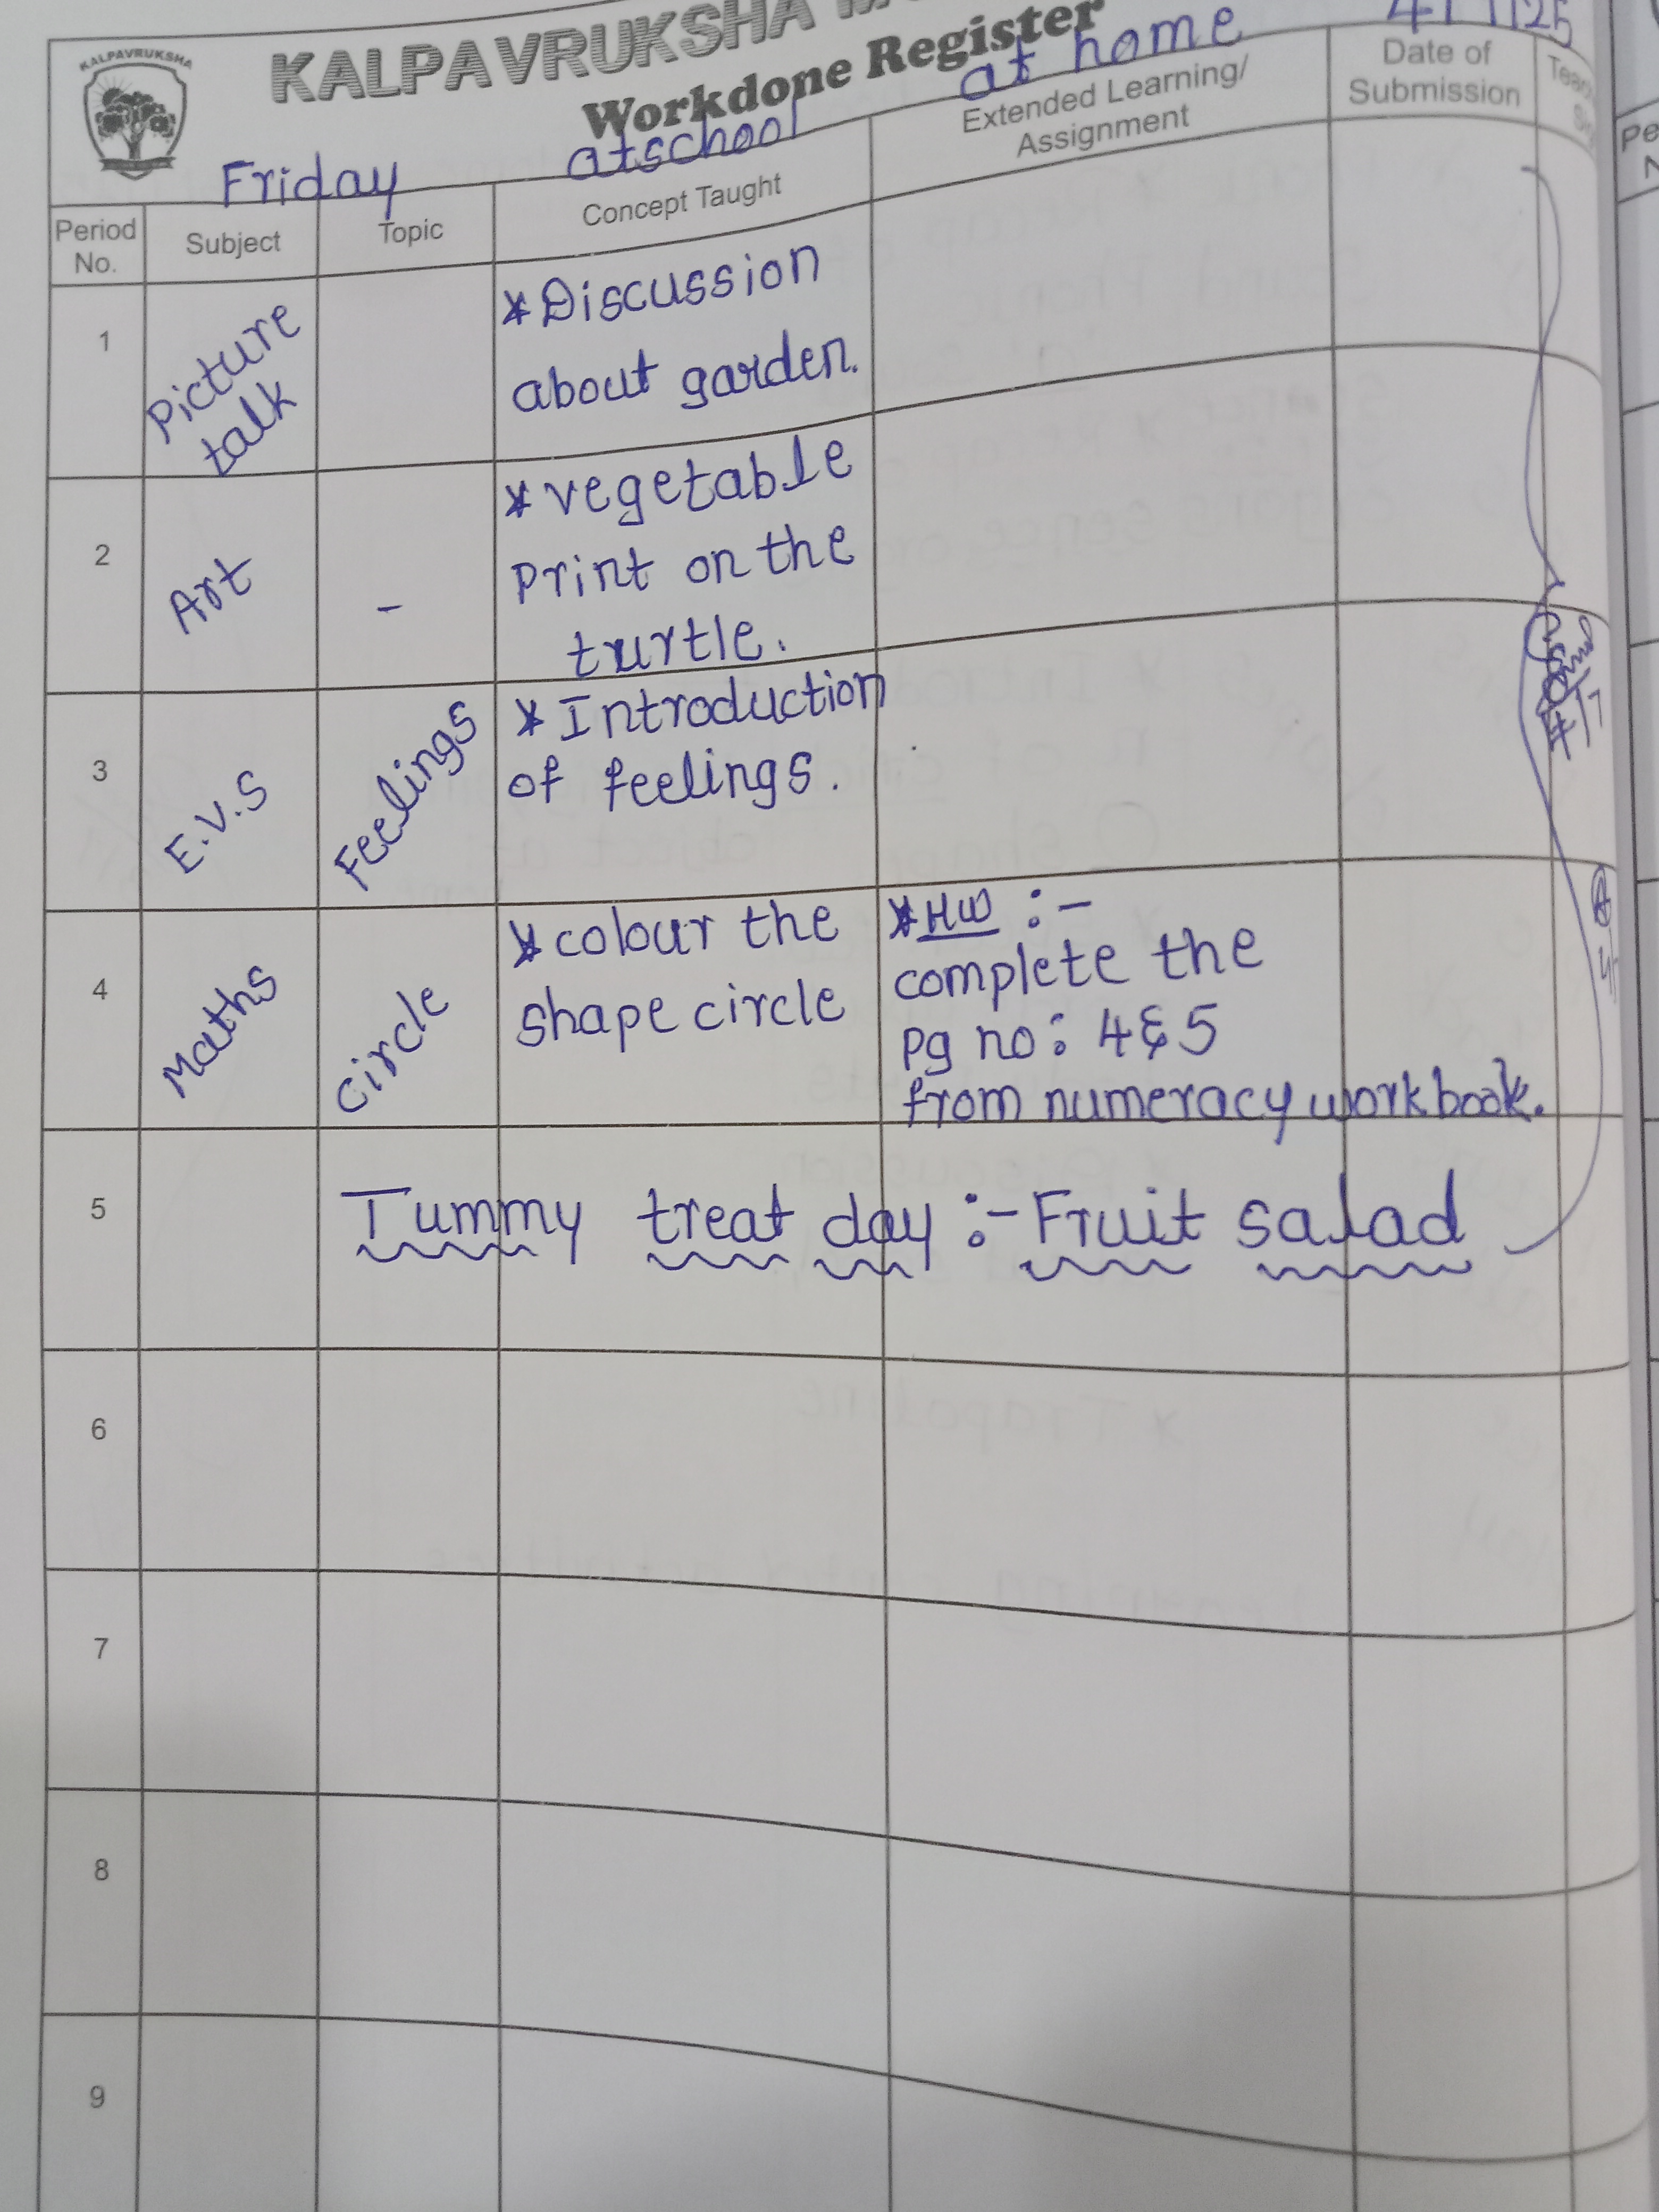 KALPAVRUKSHA
KALPAVRUKSHA
Workdone Register
4/7/25
Friday
at school
at home
Period No.
Subject
Topic
Concept Taught
Extended Learning/
Assignment
Date of
Submission
1
Picture
talk
*Discussion
about garden.
2
Art
-
*vegetable
Print on the
turtle.
3
E.V.S
Feelings
*Introduction
of feelings.
4
Maths
circle
*colour the
shape circle
*HW :-
complete the
pg no: 4&5
from numeracy workbook.
5
Tummy treat day :- Fruit salad
6
7
8
9